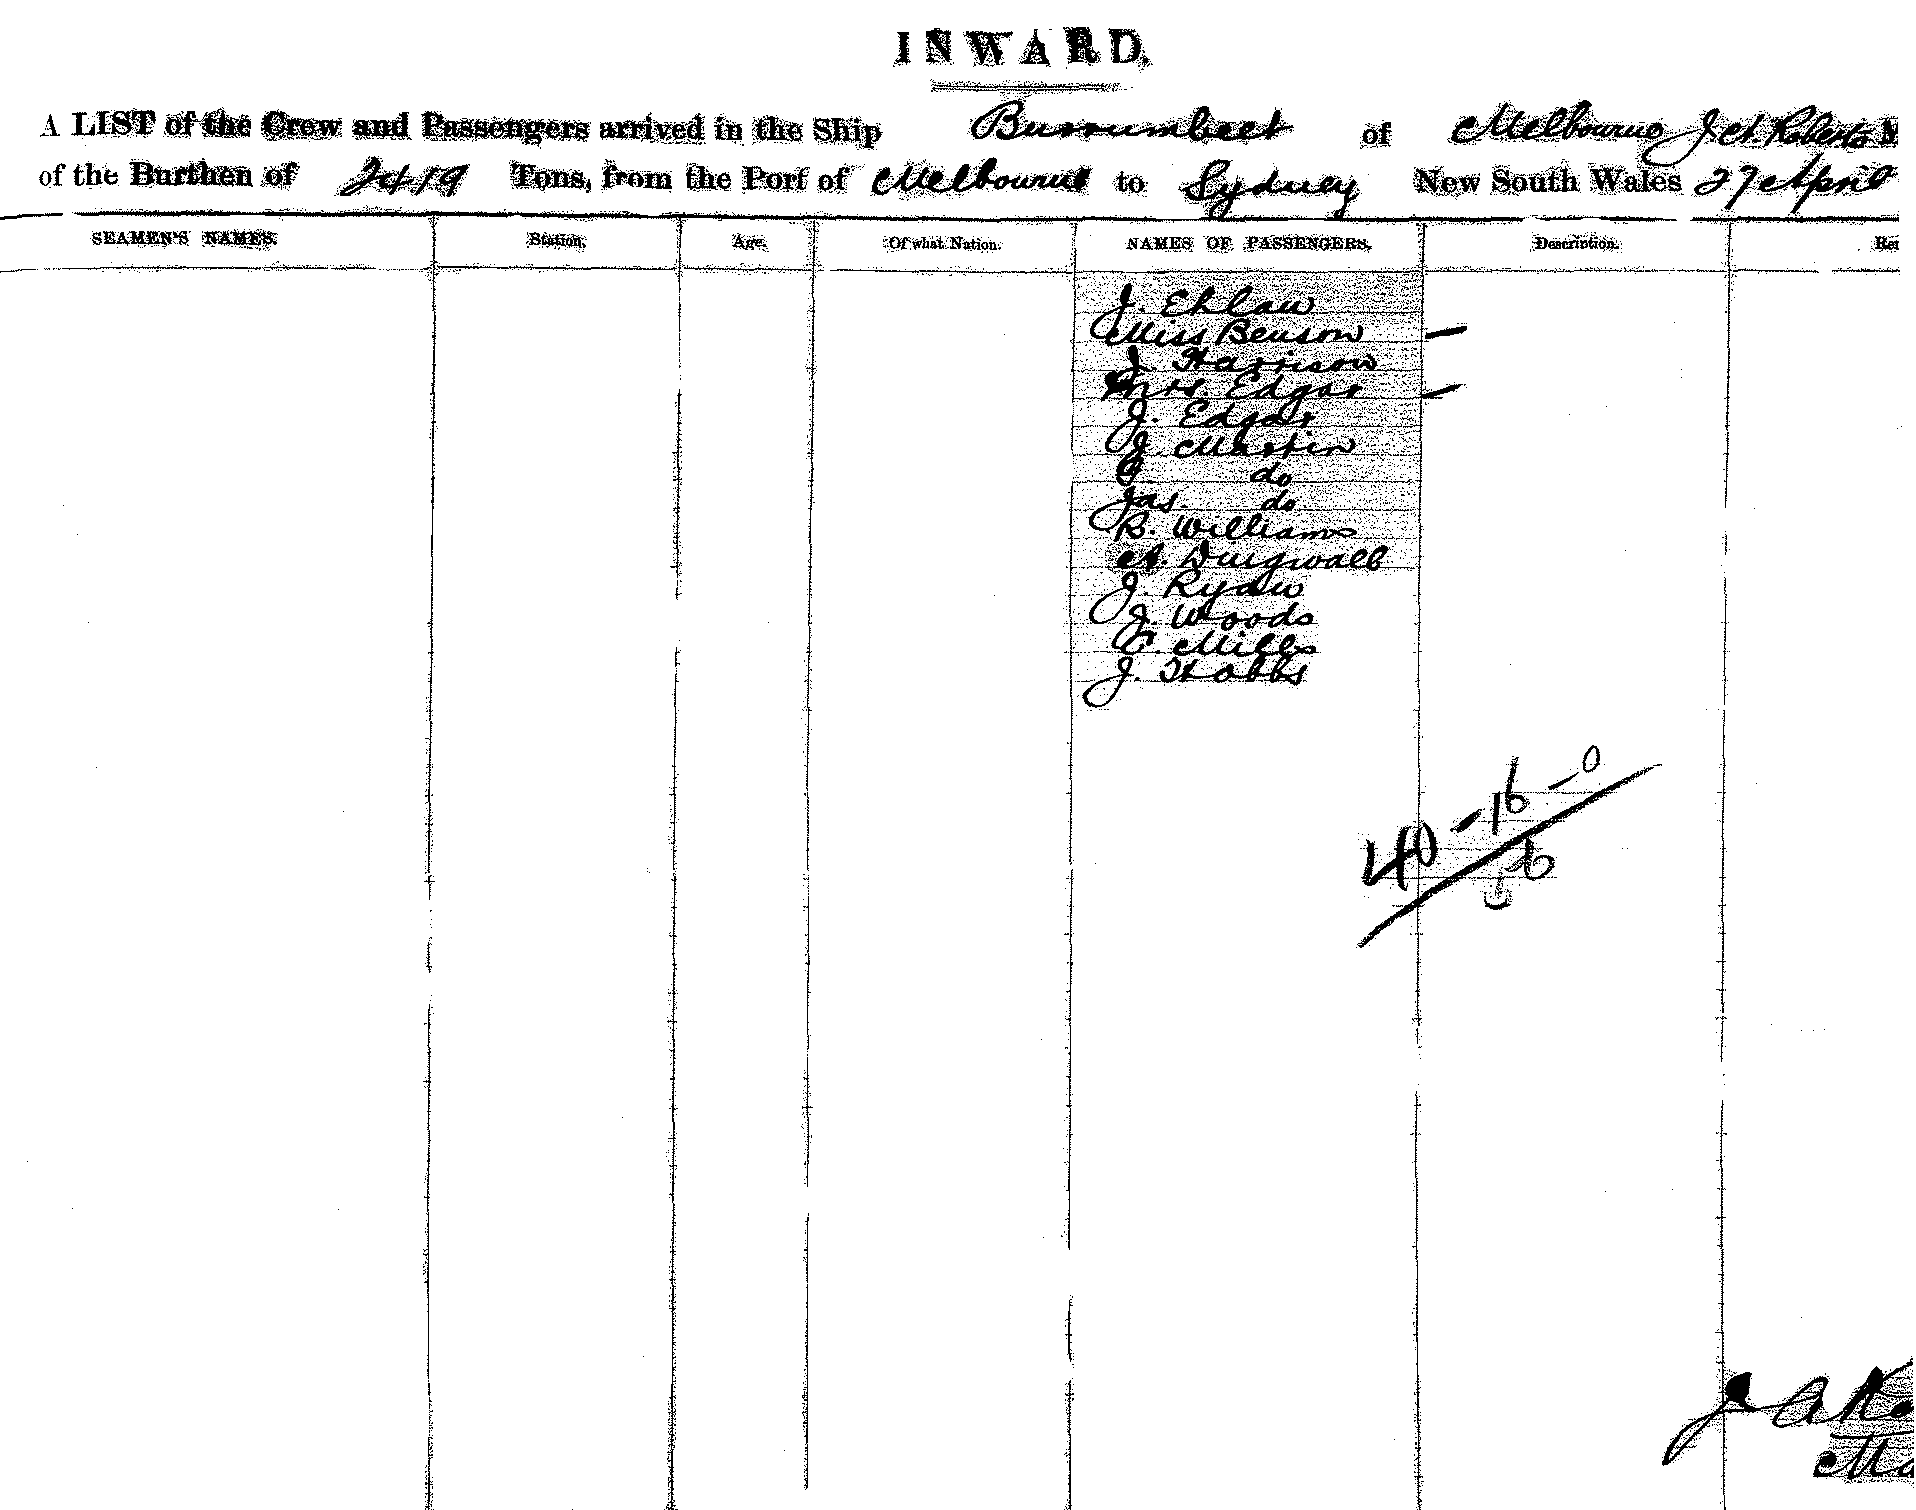 INWARD.
A LIST of the Crew and Passengers arrived in the Ship Burrumbeet of Melbourne J. A. Roberts M
of the Burthen of 2419 Tons, from the Port of Melbourne to Sydney New South Wales 27 April
SEAMEN'S NAMES. Station. Age. Of what Nation. NAMES OF PASSENGERS. Description. Re
J.
Miss Benson
J. Harrison
Mrs. Edgar
J. Edgar
J. Martin
do
Jas. do
R. Williams
A.
J. Ryan
J. Woods
C. Mills
J. Hobbs
40 - 16 - 0
J A Ro
Ma